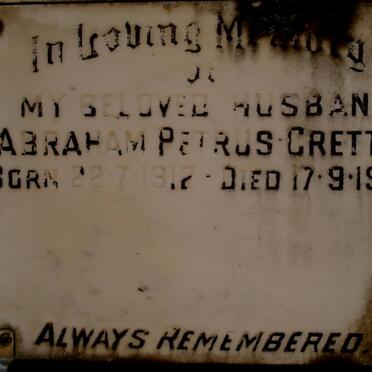 In Loving Memory
OF
MY BELOVED HUSBAN
ABRAHAM PETRUS CRETT
BORN 22·7·1912 · DIED 17·9·19
ALWAYS REMEMBERED.